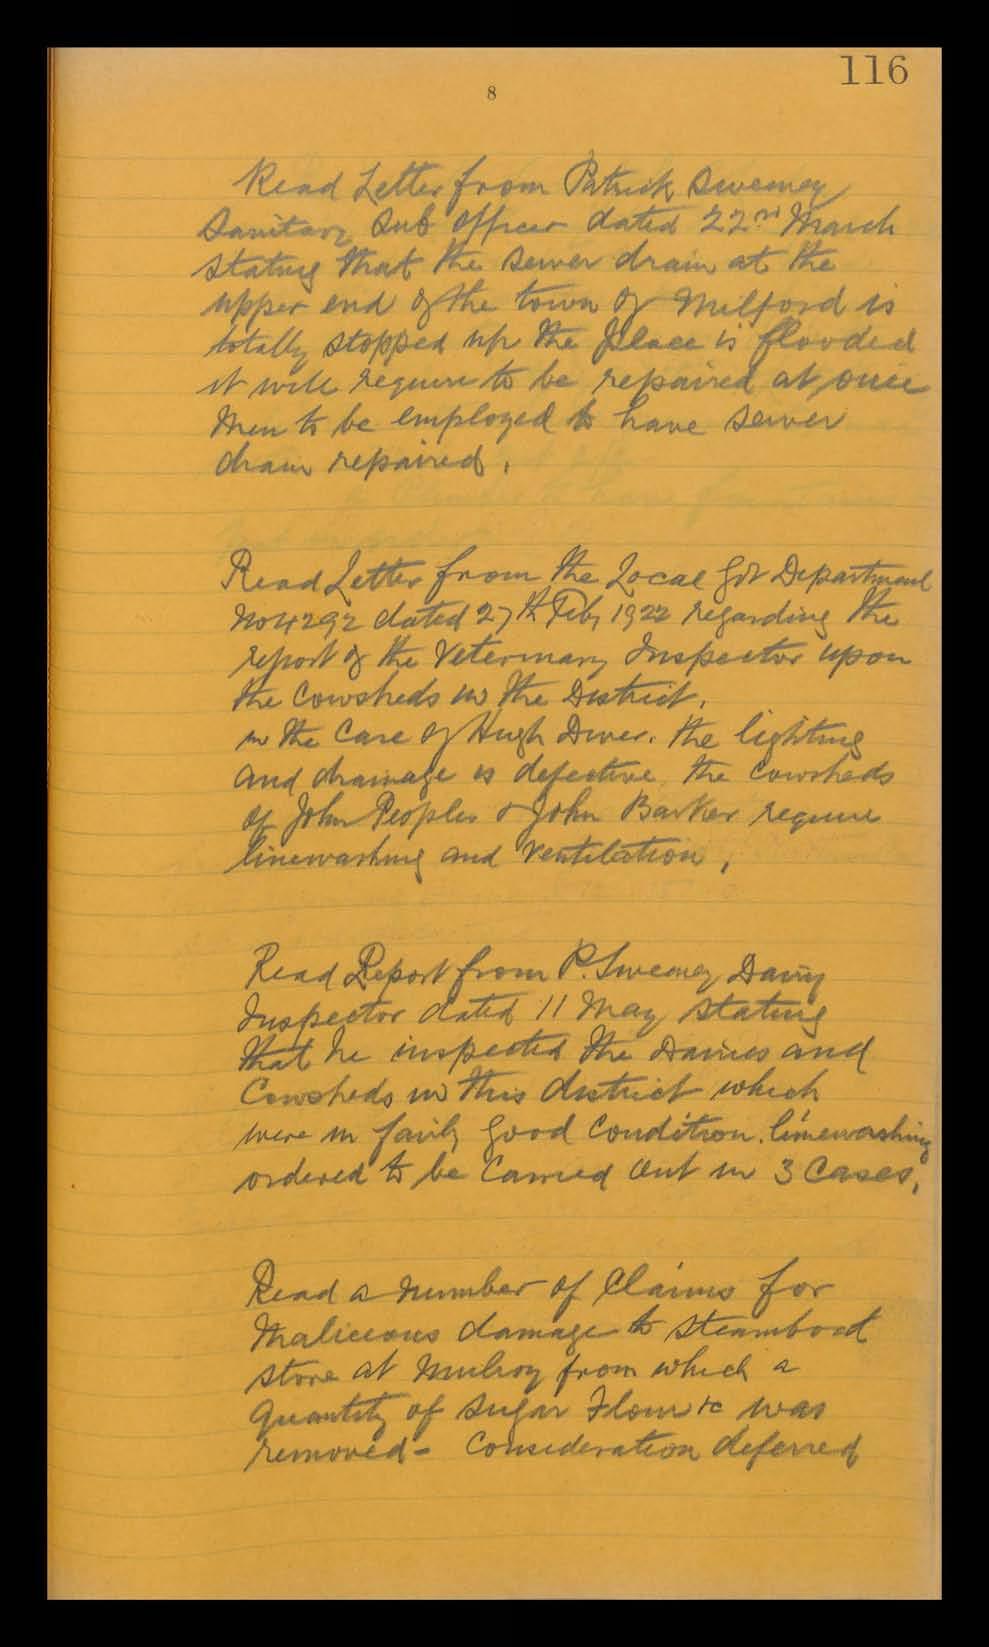 116
8
Read Letter from Patrick Sweeney
Sanitary Sub Officer dated 22nd March
stating that the sewer drain at the
upper end of the town of Milford is
totally stopped up the place is flooded
it will require to be repaired at once
Men to be employed to have sewer
drain repaired.
Read Letter from the Local Govt Department
No 4292 dated 27th Feby 1922 regarding the
report of the Veterinary Inspector upon
the Cowsheds in the District.
in the Case of Hugh Diver. the lighting
and drainage is defective the Cowsheds
of John Peoples & John Barker require
limewashing and ventilation.
Read Report from P. Sweeney Dairy
Inspector dated 11 May stating
that he inspected the Dairies and
Cowsheds in this district which
were in fairly good Condition. limewashing
ordered to be Carried out in 3 Cases.
Read a number of Claims for
Malicious damage to steamboat
store at Mulroy from which a
quantity of sugar Flour &c was
removed - Consideration deferred